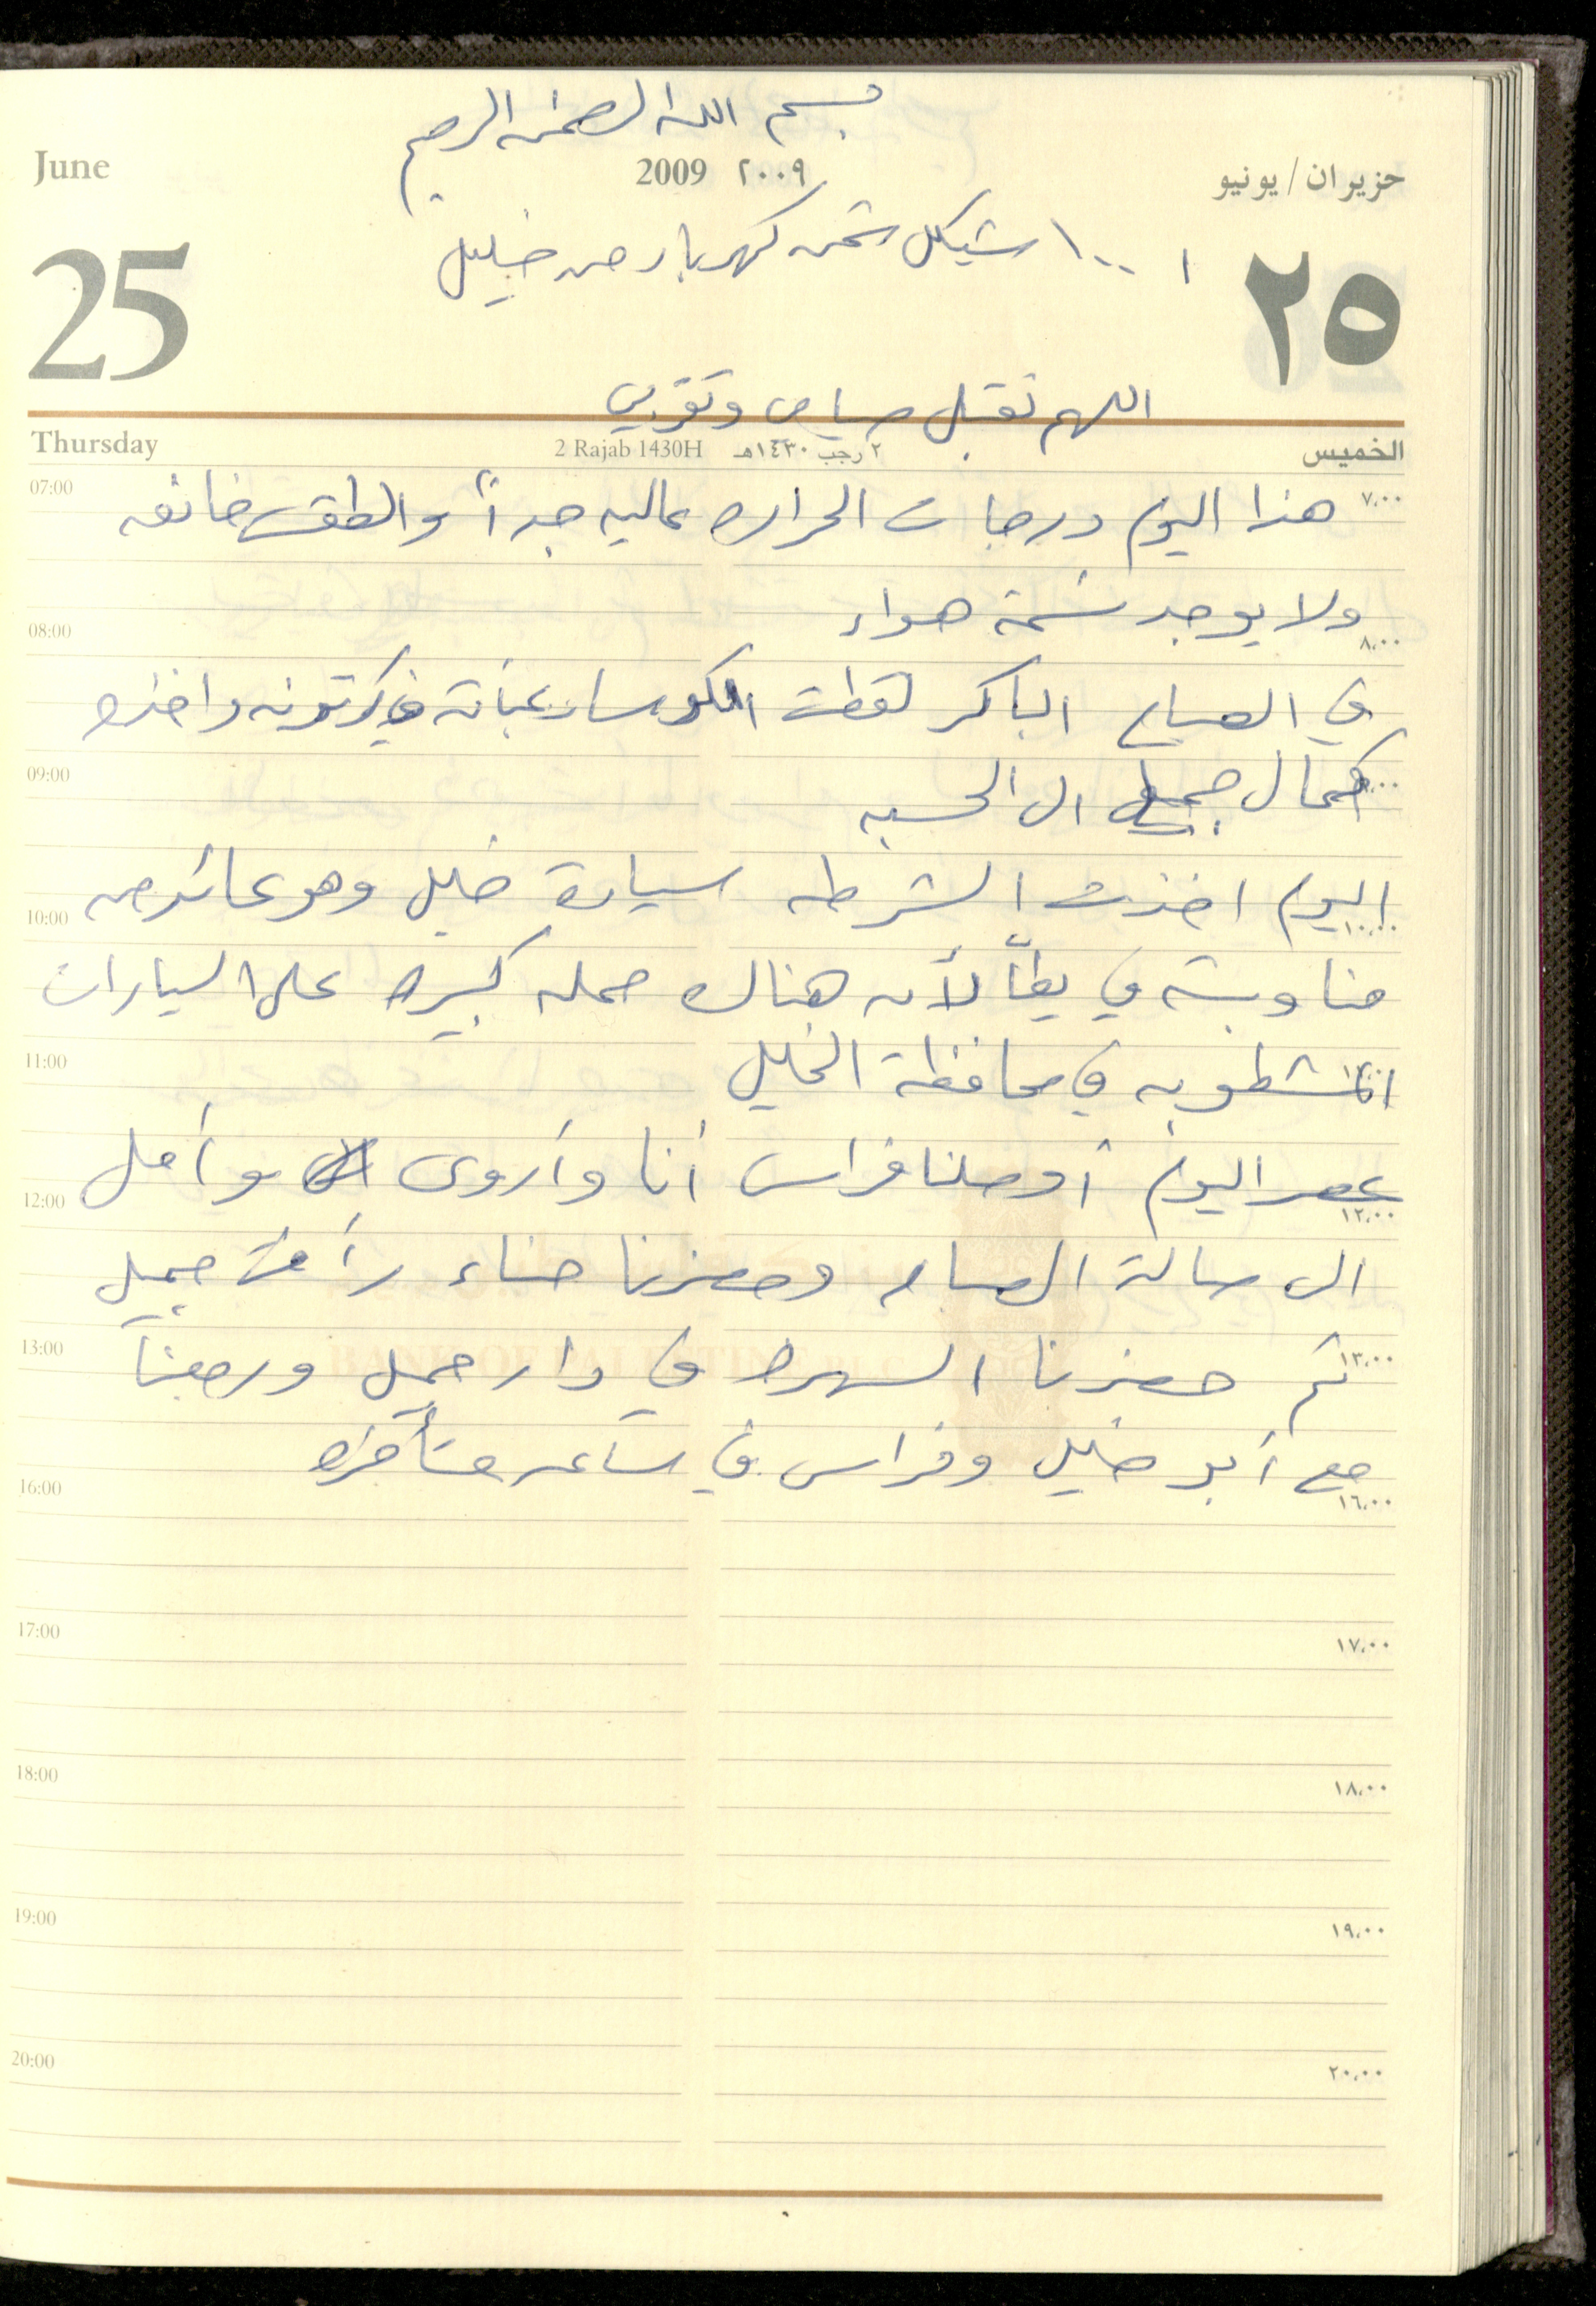 بسم الله الرحمن الرحيم
June 2009 ٢٠٠٩ حزيران / يونيو
١٠٠ شيكل ثمن كهرباء من خليل
25 ٢٥
اللهم تقبل صيامي وتقربي
Thursday 2 Rajab 1430H ٢ رجب ١٤٣٠هـ الخميس
07:00 ٧,٠٠
هذا اليوم درجات الحراره عاليه جداً والطقس خانقه
ولا يوجد نسمة هواء
08:00 ٨,٠٠
في الصباح الباكر لقطت الكوسا وعبأته في كرتونه واخذه
09:00
كمال جميل الى الحسبه
اليوم اخذت الشرطه سيارة خليل وهو عائد من
10:00 ١٠,٠٠
مناوبته في يطا لأن هناك حمله كبيره على السيارات
11:00
المشطوبه في محافظة الخليل
عصر اليوم أوصلنا فراس أنا وأروى وأمل
12:00 ١٢,٠٠
الى صالة وحضرنا حناء جميل
13:00 ١٣,٠٠
ثم حضرنا السهره في دار جميل ورجعنا
BANK OF PALESTINE
مع أبو خليل وفراس في ساعه متأخره
16:00 ١٦,٠٠
17:00 ١٧,٠٠
18:00 ١٨,٠٠
19:00 ١٩,٠٠
20:00 ٢٠,٠٠